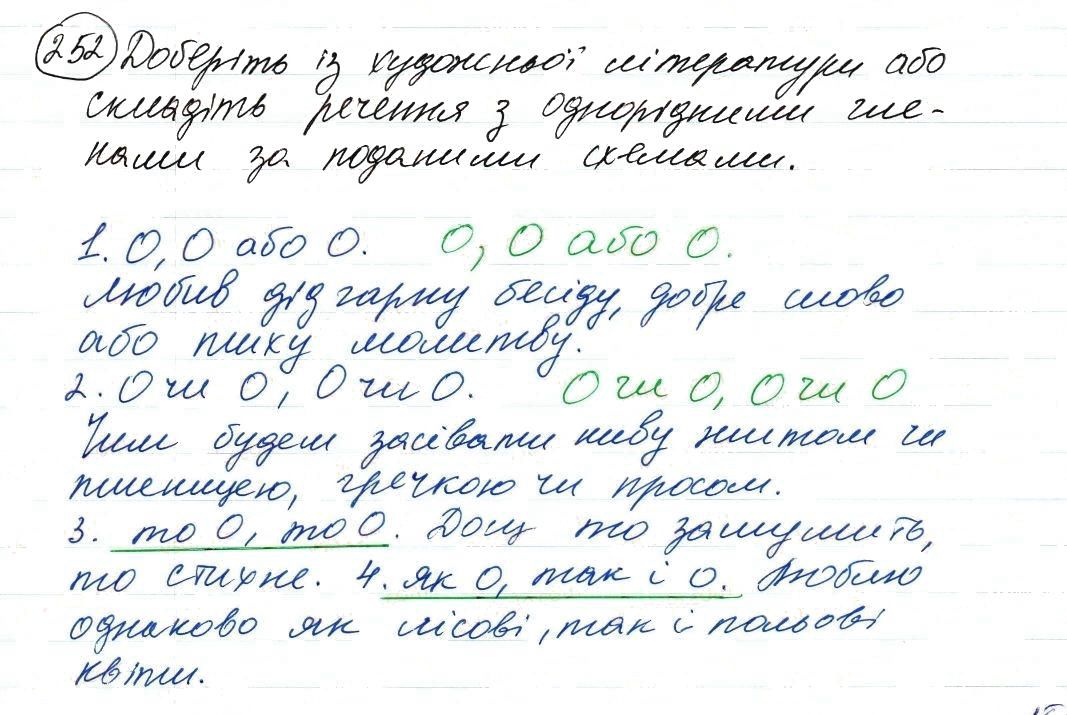 252 Доберіть із художньої літератури або
складіть речення з однорідними чле-
нами за поданими схемами.
1. О, О або О. О, О або О.
Любив дід гарну бесіду, добре слово
або тиху молитву.
2. О чи О, О чи О. О чи О, О чи О
Чим будем засівати ниву житом чи
пшеницею, гречкою чи просом.
3. то О, то О. Дощ то зашумить,
то стихне. 4. як О, так і О. Люблю
однаково як лісові, так і польові
квіти.